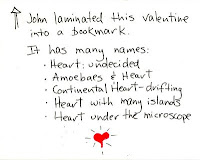 John laminated this valentine
into a bookmark.
It has many names:
· Heart: undecided
· Amoebaes & Heart
· Continental Heart-drifting
· Heart with many islands
· Heart under the microscope